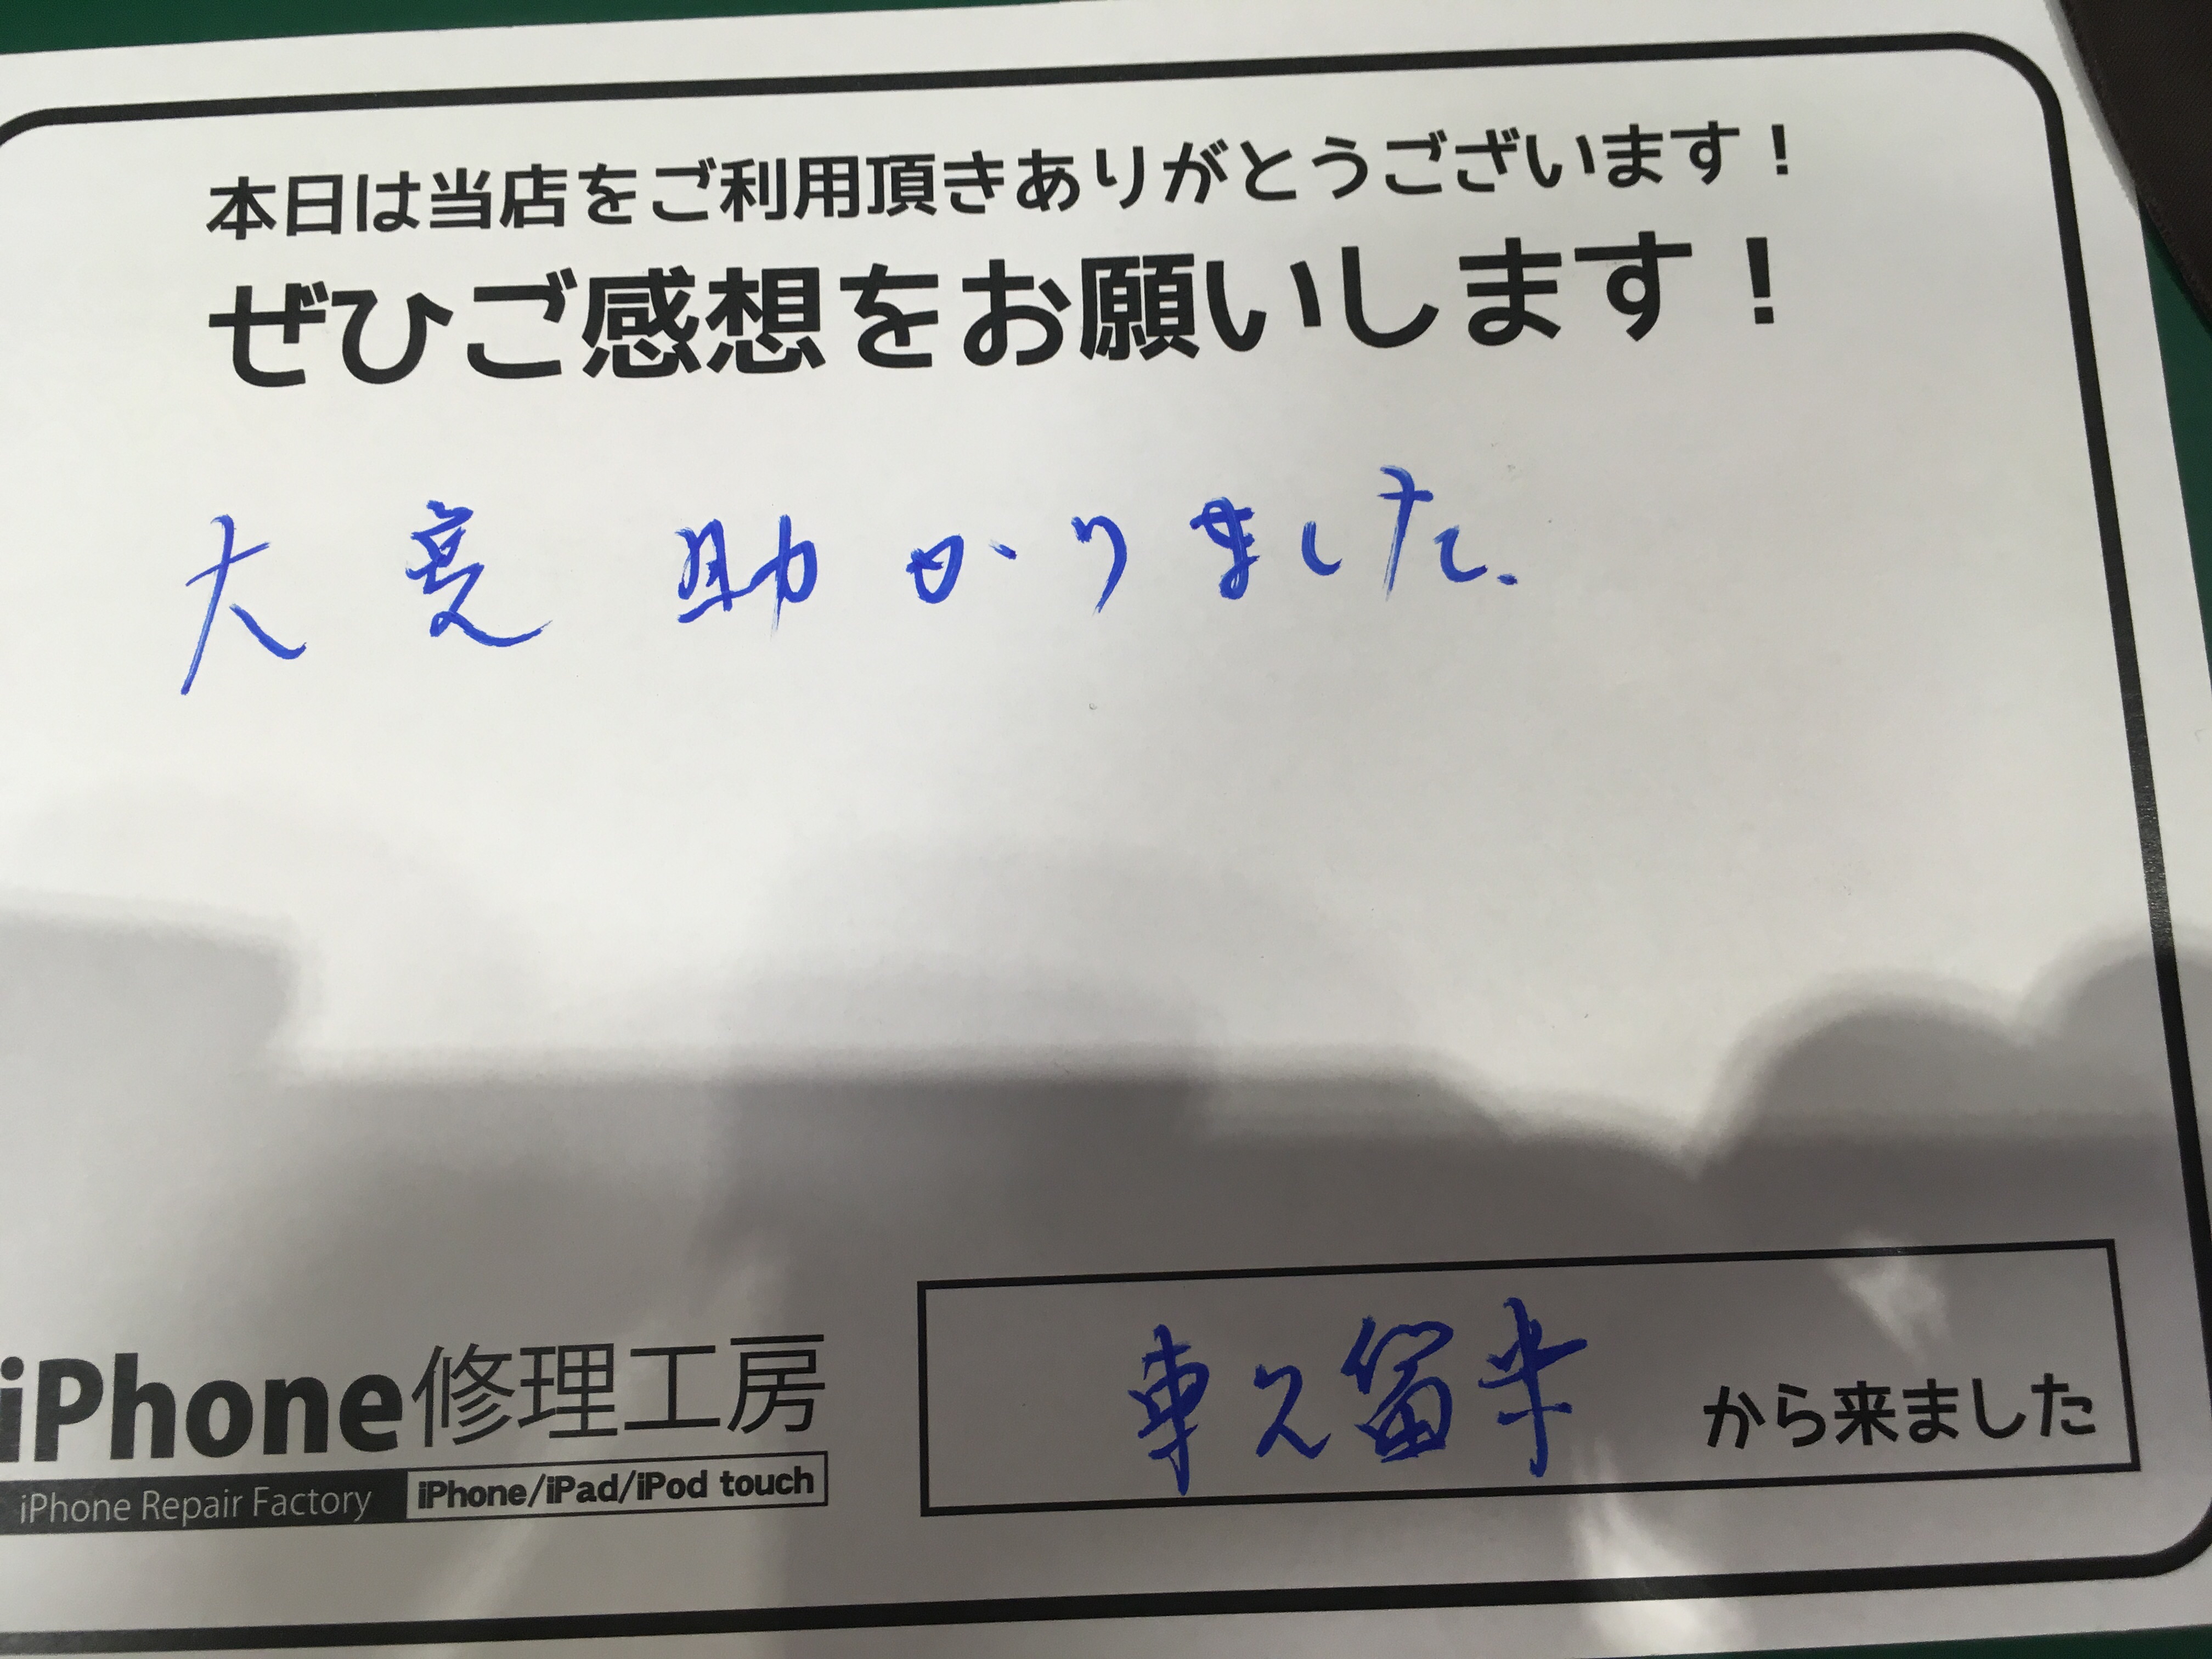 本日は当店をご利用頂きありがとうございます！
ぜひご感想をお願いします！
大変助かりました.
iPhone修理工房
iPhone Repair Factory iPhone/iPad/iPod touch
東久留米 から来ました